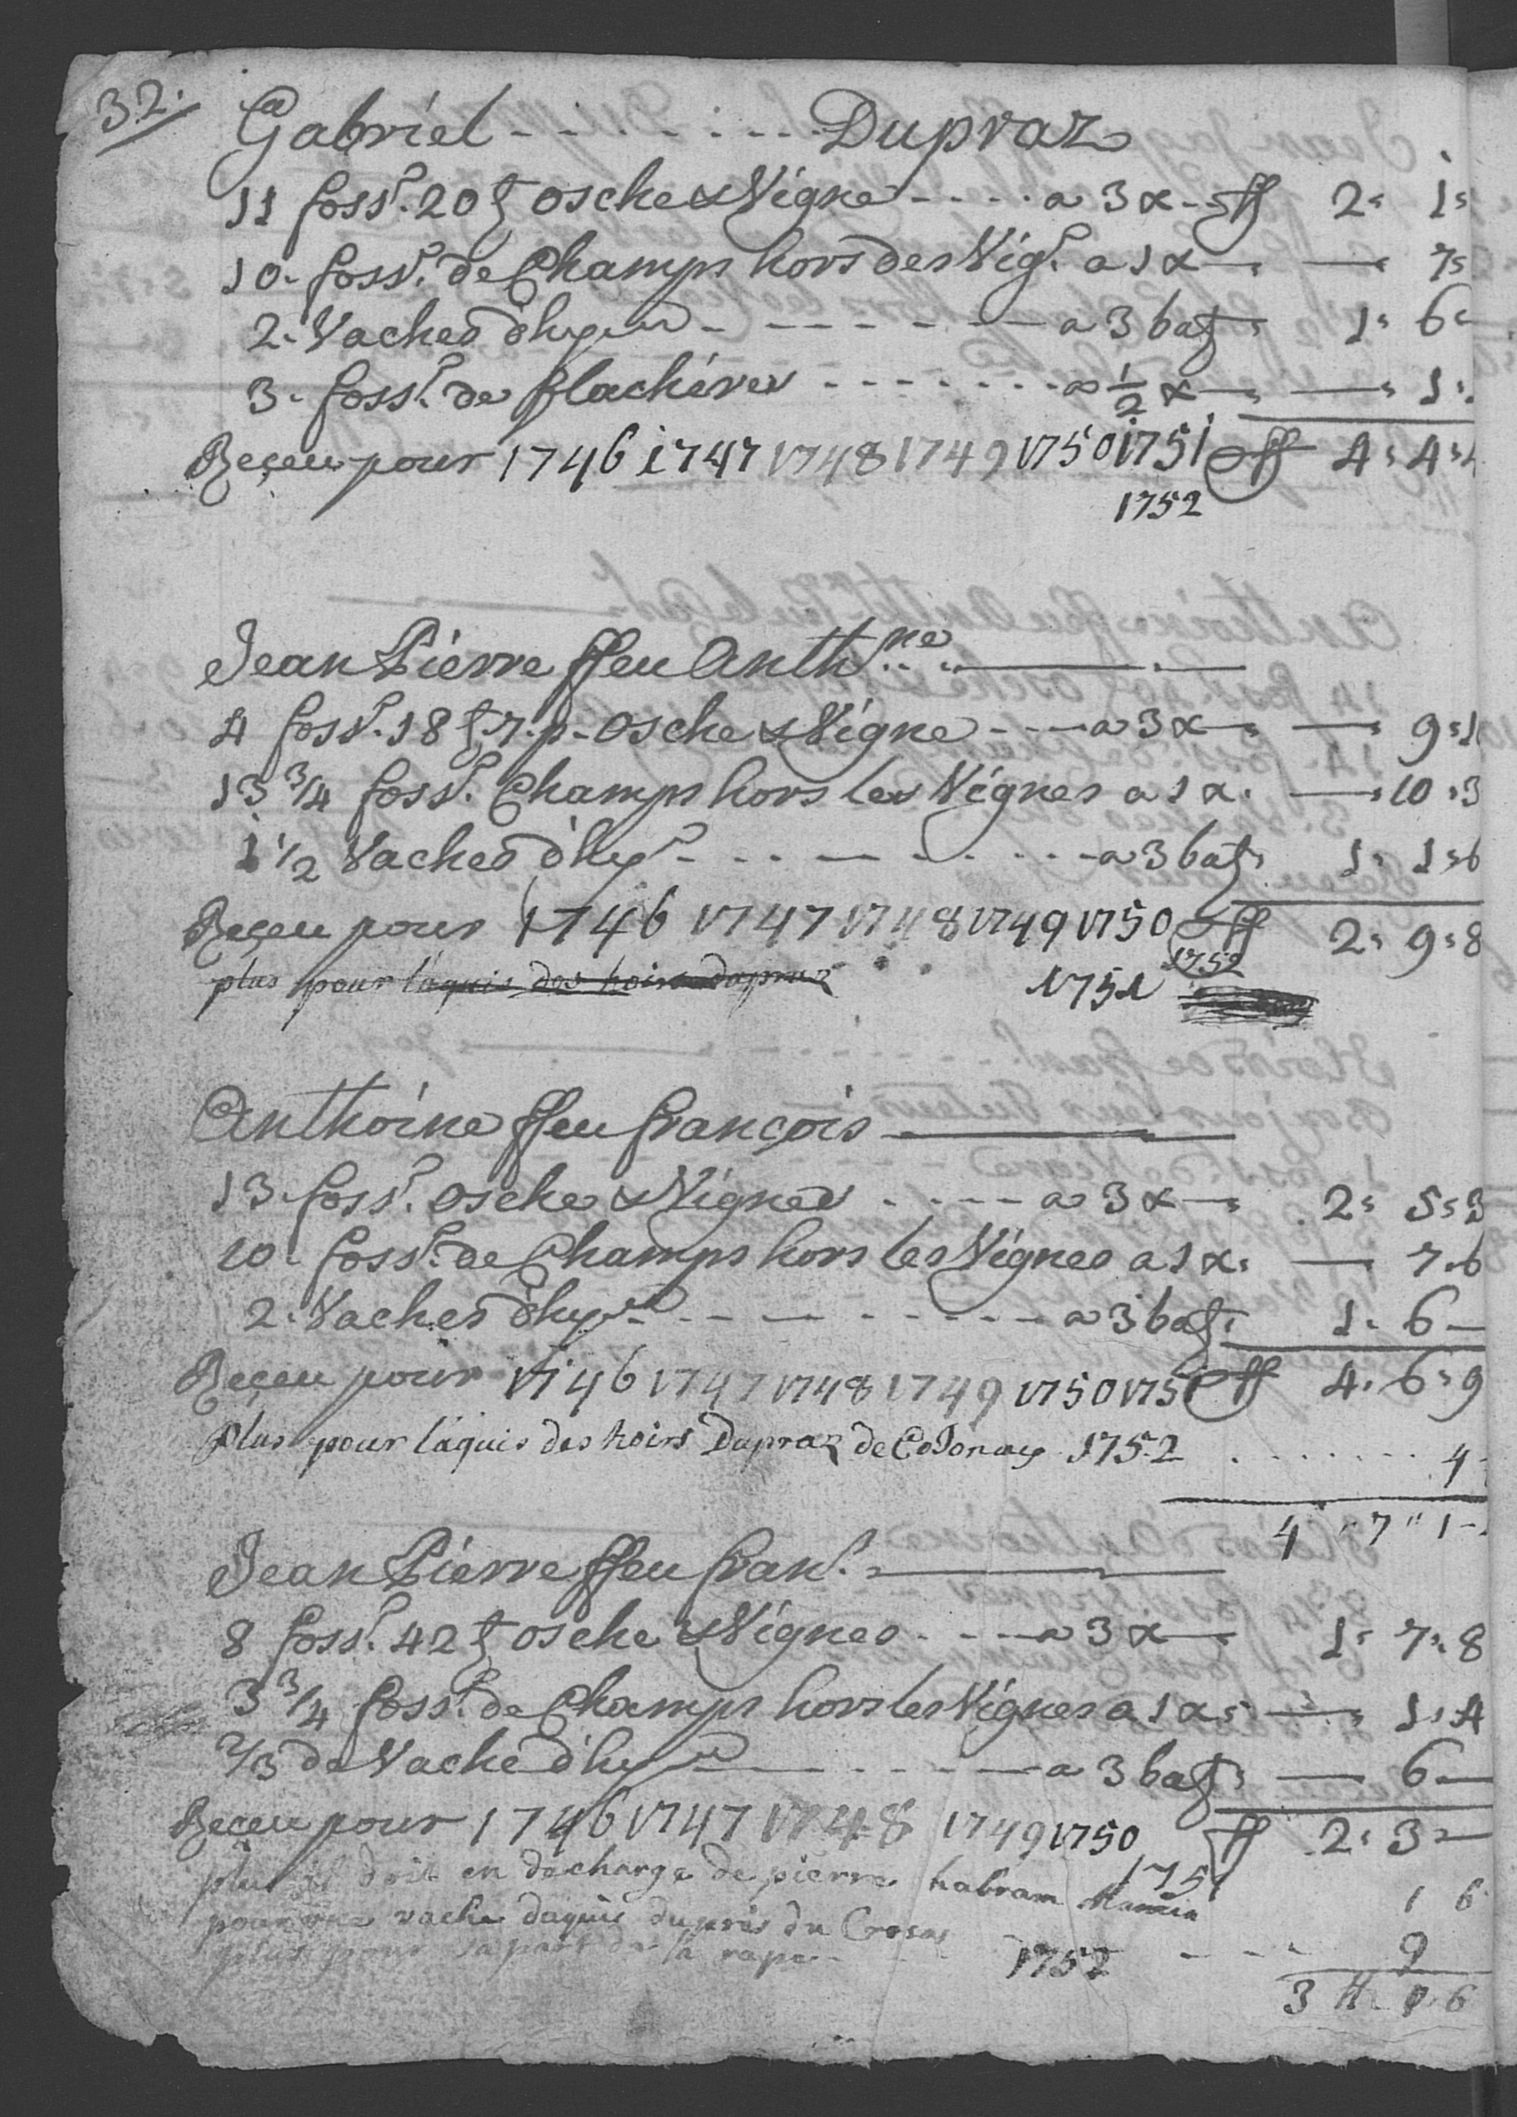 32.
Gabriel - - - - - - - Dupraz
11 foss.r 20 ʒ osche & Vigne - - - - a 3 x - ff 2 = 1 =
10 - foss.r de Champs hors des Vig.s a 1 x — 7 =
2 - Vaches d'hy - - - - - - - a 3 batz 1 = 6 =
3 - foss.r de flachères - - - - - - - a 1/2 x — 1 =
Reçeu pour 1746 1747 1748 1749 1750 1751 ff 4 = 4 =
1752
Jean Pierre ffeu Anth.ne
4 foss.r 18 ʒ 7. p - Osche & Vigne - - - a 3 x — 9 =
13 3/4 foss.r Champs hors les Vignes a 1 x. — 10 = 3
1 1/2 Vaches d'hy - - - - - - - a 3 batz 1 = 1 = 6
Reçeu pour 1746 1747 1748 1749 1750 ff 2 = 9 = 8
plus pour l'aquis des hoirs Dupraz 1751 1752
Anthoine ffeu françois
13 - foss.r osche & Vignes - - - - a 3 x — 2 = 5 = 3
10 - foss.r de Champs hors les Vignes a 1 x. — 7 . 6
2 - Vaches d'hy - - - - - - - a 3 batz 1 - 6 —
Reçeu pour 1746 1747 1748 1749 1750 1751 ff 4 . 6 = 9
Plus pour l'aquis des hoirs Dupraz de 1752 . . . . . . . 4
4 " 7 " 1 -
Jean Pierre ffeu fran.s
8 foss.r 42 ʒ osche & Vignes - - - a 3 x — 1 = 7 = 8
3 3/4 foss.r de Champs hors les Vignes a 1 x = — 1 = 4
2/3 de Vache d'hy - - - - - a 3 batz — 6 —
Reçeu pour 1746 1747 1748 1749 1750 ff 2 = 3 = —
plus il doit en decharge de pierre habram 1751
pour une vache daquis dupres du 1 6
plus pour sa part de la rape - 1752 - - - 9
3 ff 6